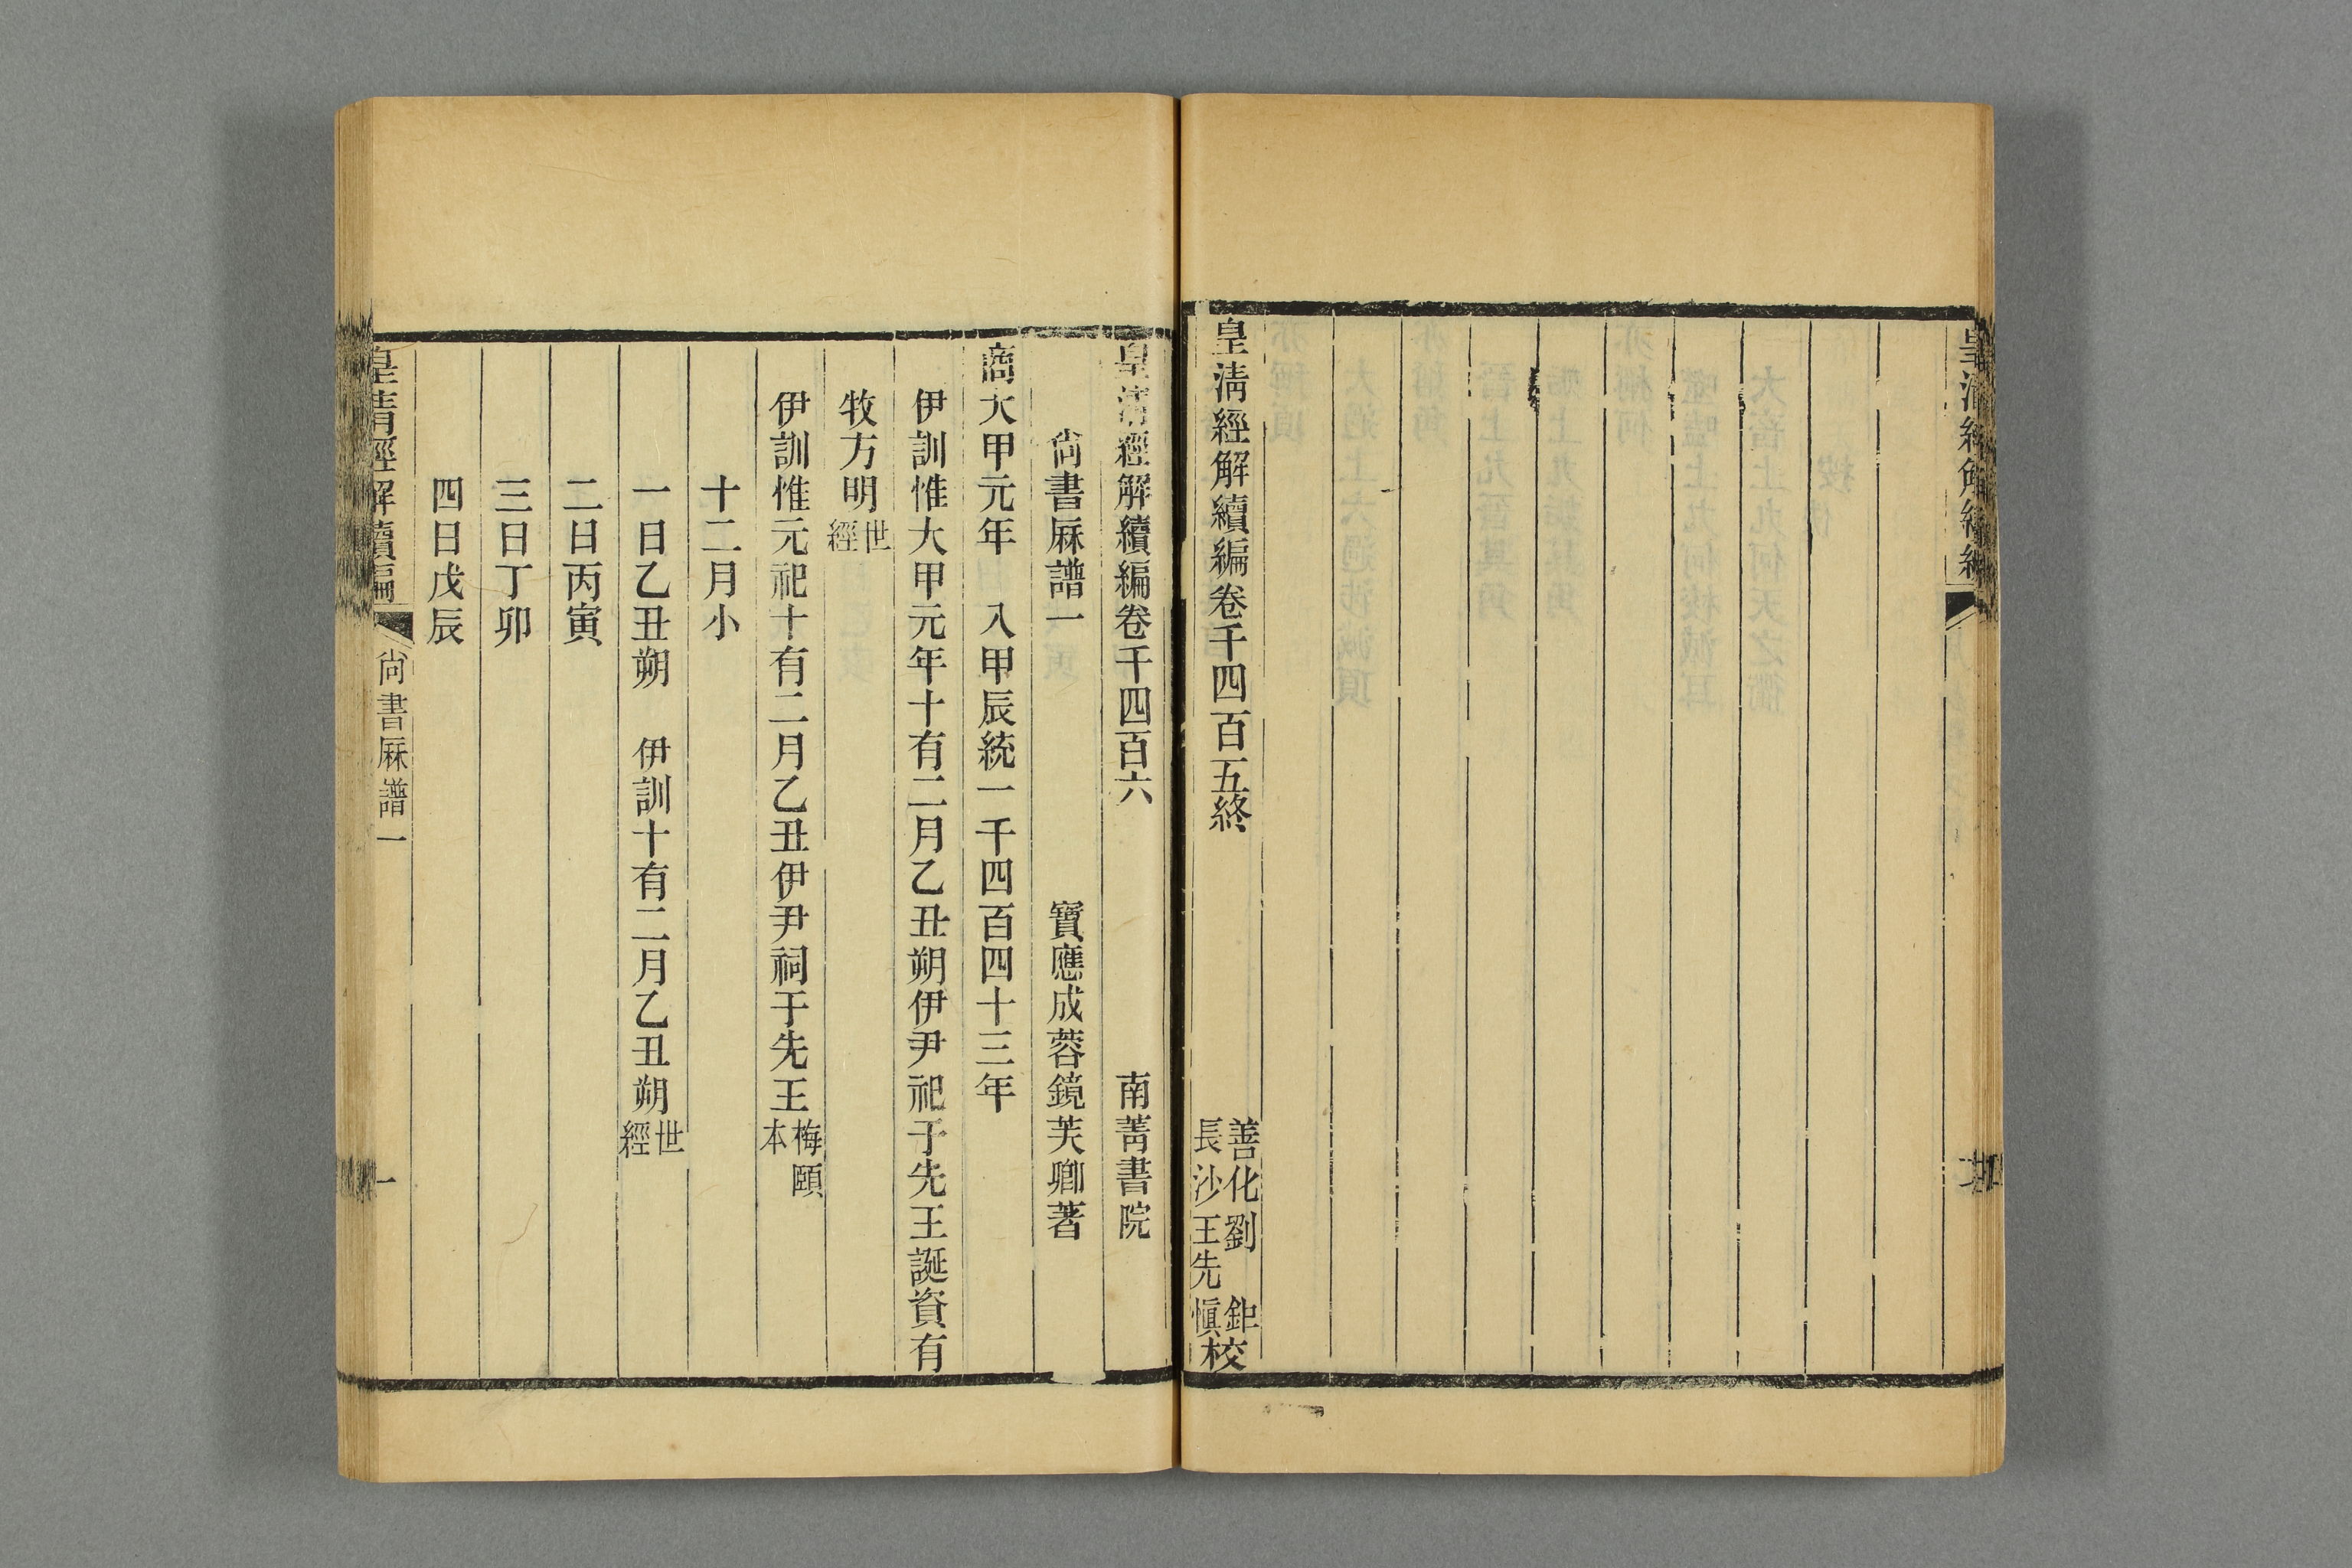 皇清經解續編
皇清經解續編卷千四百五終
善化劉鉅
長沙王先慎校
皇清經解續編卷千四百六 南菁書院
尚書厤譜一 寶應成蓉鏡芙卿著
商大甲元年 入甲辰統一千四百四十三年
伊訓惟大甲元年十有二月乙丑朔伊尹祀于先王誕資有
牧方明世經
伊訓惟元祀十有二月乙丑伊尹祠于先王梅頤本
十二月小
一日乙丑朔 伊訓十有二月乙丑朔世經
二日丙寅
三日丁卯
四日戊辰
皇清經解續編 尚書厤譜一 一